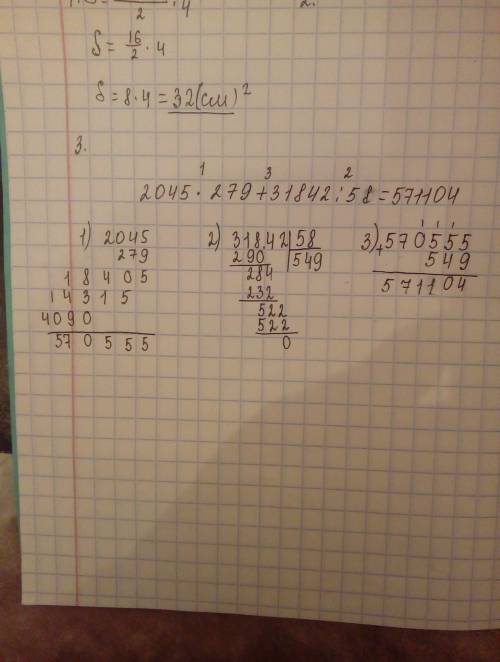 2 · 4
2.
S = 16/2 · 4
S = 8 · 4 = 32 (см)²
3.
1 3 2
2045 · 279 + 31842 : 58 = 571104
1) 2045
279
18405
14315
4090
570555
2) 31842 | 58
290 | 549
284
232
522
522
0
3) + 570555
549
571104